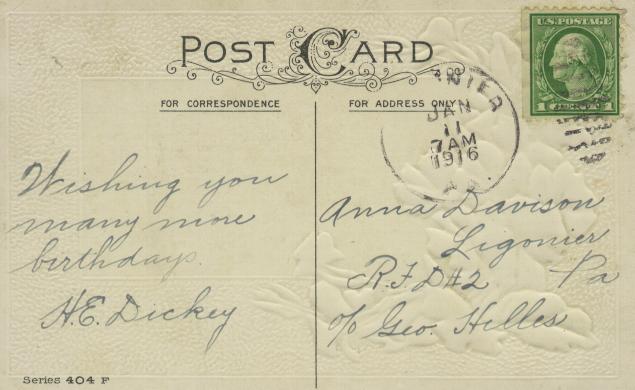 POST CARD
FOR CORRESPONDENCE
FOR ADDRESS ONLY
U.S. POSTAGE
1 CENT 1
JAN
11
7AM
1916
Wishing you
many more
birthdays.
H.E. Dickey
Anna Davison
Ligonier
R.F.D#2 Pa
c/o Geo. Helles
Series 404 F